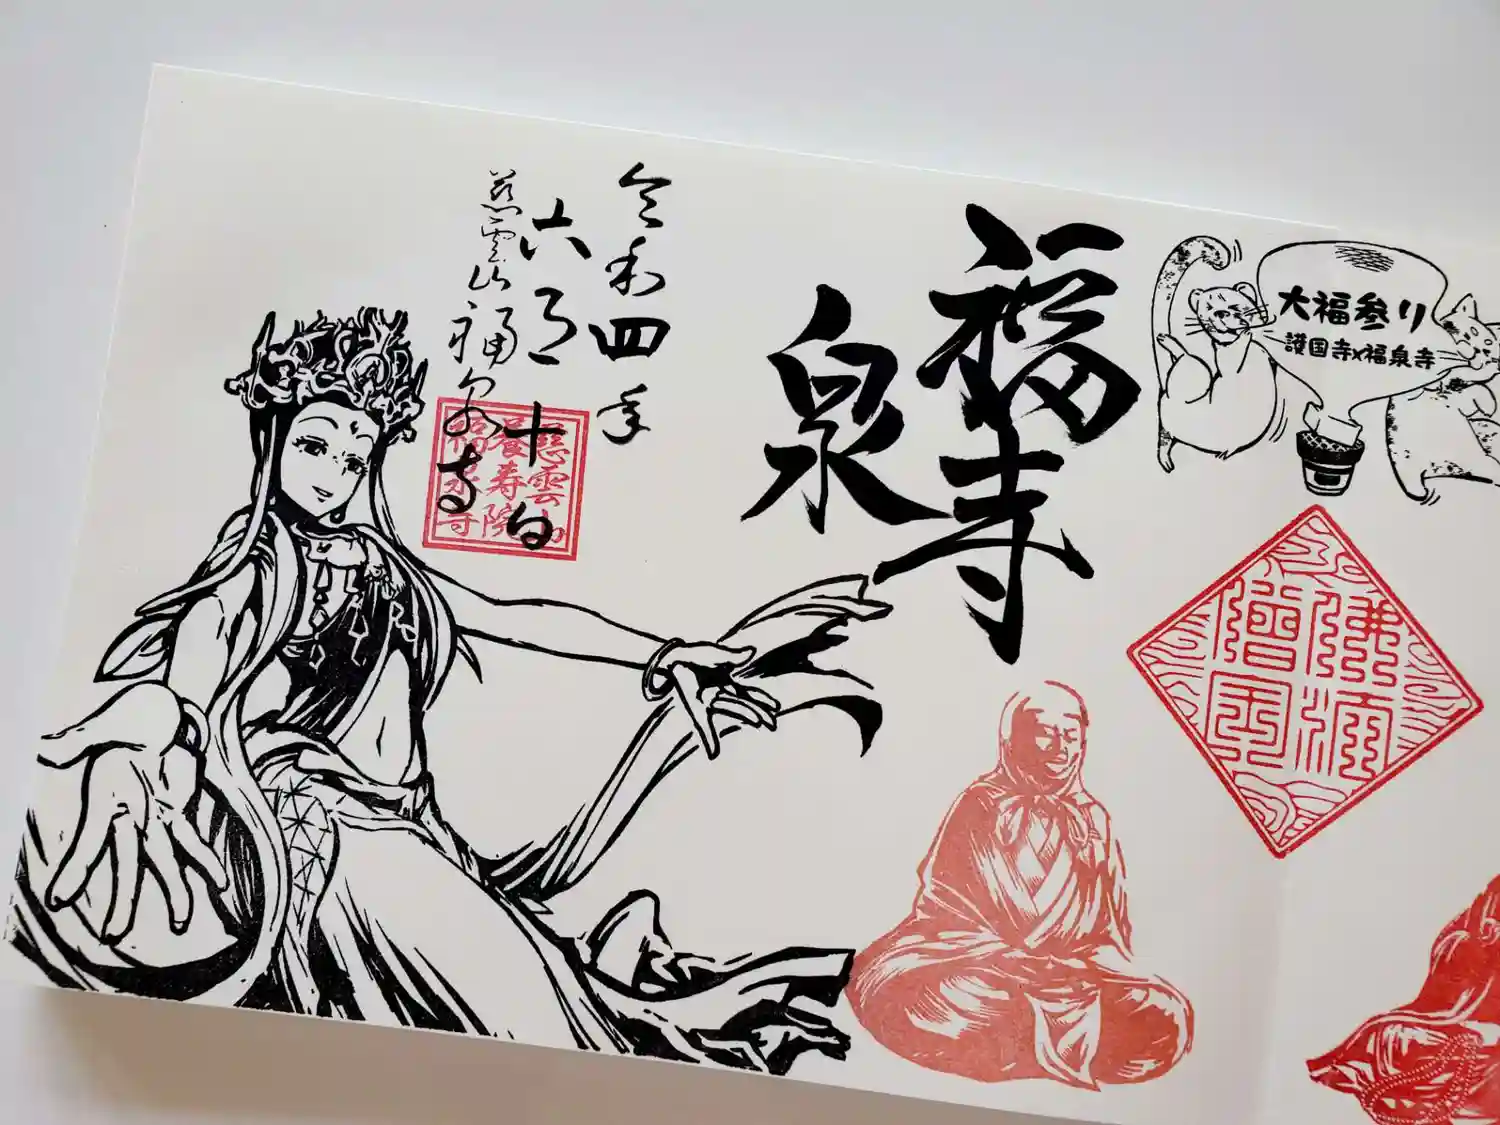 大福参り
護国寺x福泉寺
福泉寺
令和四年
六月十日
慈雲山福泉寺
慈雲山
養寿院
福泉寺